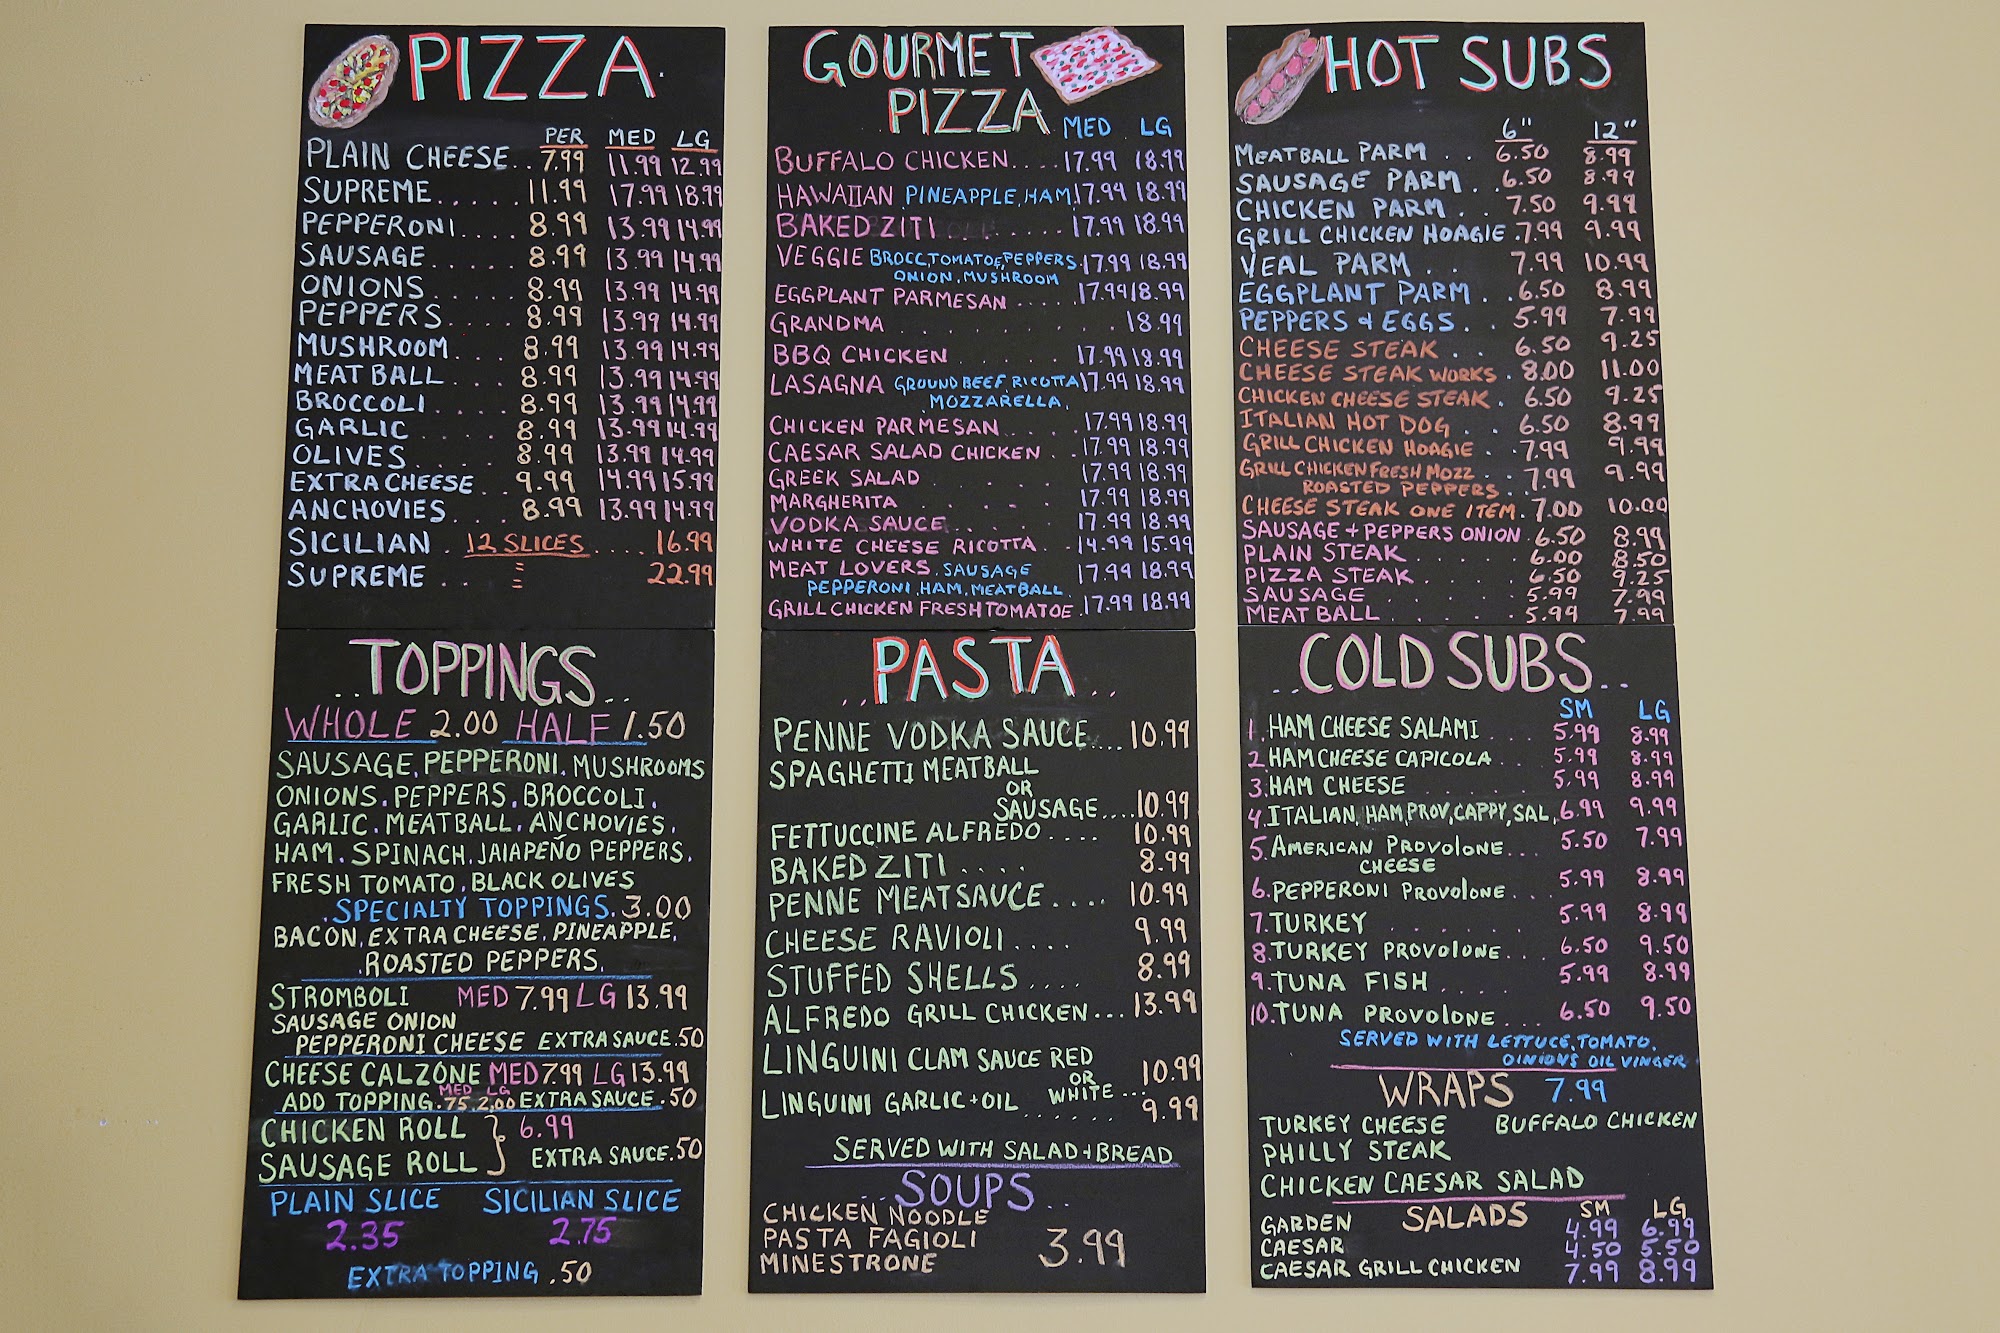 PIZZA.
PER MED LG
PLAIN CHEESE.. 7.99 11.99 12.99
SUPREME..... 11.99 17.99 18.99
PEPPERONI.... 8.99 13.99 14.99
SAUSAGE..... 8.99 13.99 14.99
ONIONS..... 8.99 13.99 14.99
PEPPERS.... 8.99 13.99 14.99
MUSHROOM... 8.99 13.99 14.99
MEAT BALL.... 8.99 13.99 14.99
BROCCOLI..... 8.99 13.99 14.99
GARLIC..... 8.99 13.99 14.99
OLIVES..... 8.99 13.99 14.99
EXTRA CHEESE.. 9.99 14.99 15.99
ANCHOVIES.... 8.99 13.99 14.99
SICILIAN . 12 SLICES .... 16.99
SUPREME .. 22.99
TOPPINGS
WHOLE 2.00 HALF 1.50
SAUSAGE, PEPPERONI, MUSHROOMS
ONIONS, PEPPERS, BROCCOLI,
GARLIC, MEATBALL, ANCHOVIES,
HAM, SPINACH, JAIAPEÑO PEPPERS,
FRESH TOMATO, BLACK OLIVES
SPECIALTY TOPPINGS. 3.00
BACON, EXTRA CHEESE, PINEAPPLE,
ROASTED PEPPERS.
STROMBOLI MED 7.99 LG 13.99
SAUSAGE ONION
PEPPERONI CHEESE EXTRA SAUCE .50
CHEESE CALZONE MED 7.99 LG 13.99
MED LG
ADD TOPPING .75 2.00 EXTRA SAUCE .50
CHICKEN ROLL } 6.99
SAUSAGE ROLL EXTRA SAUCE .50
PLAIN SLICE SICILIAN SLICE
2.35 2.75
EXTRA TOPPING .50
GOURMET
PIZZA MED LG
BUFFALO CHICKEN.... 17.99 18.99
HAWAIIAN PINEAPPLE, HAM 17.99 18.99
BAKED ZITI ........ 17.99 18.99
VEGGIE BROCC, TOMATOE, PEPPERS 17.99 18.99
ONION, MUSHROOM
EGGPLANT PARMESAN ..... 17.99 18.99
GRANDMA ........ 18.99
BBQ CHICKEN ...... 17.99 18.99
LASAGNA GROUND BEEF, RICOTTA 17.99 18.99
MOZZARELLA.
CHICKEN PARMESAN .... 17.99 18.99
CAESAR SALAD CHICKEN .. 17.99 18.99
GREEK SALAD ..... 17.99 18.99
MARGHERITA ..... 17.99 18.99
VODKA SAUCE ..... 17.99 18.99
WHITE CHEESE RICOTTA .. 14.99 15.99
MEAT LOVERS, SAUSAGE 17.99 18.99
PEPPERONI, HAM, MEATBALL,
GRILL CHICKEN FRESH TOMATOE . 17.99 18.99
..PASTA..
PENNE VODKA SAUCE.... 10.99
SPAGHETTI MEATBALL
OR
SAUSAGE.... 10.99
FETTUCCINE ALFREDO .... 10.99
BAKED ZITI .... 8.99
PENNE MEAT SAUCE .... 10.99
CHEESE RAVIOLI .... 9.99
STUFFED SHELLS .... 8.99
ALFREDO GRILL CHICKEN... 13.99
LINGUINI CLAM SAUCE RED
OR
WHITE ... 10.99
LINGUINI GARLIC + OIL ...... 9.99
SERVED WITH SALAD + BREAD
..SOUPS..
CHICKEN NOODLE
PASTA FAGIOLI 3.99
MINESTRONE
HOT SUBS
6" 12"
MEATBALL PARM .. 6.50 8.99
SAUSAGE PARM .. 6.50 8.99
CHICKEN PARM .. 7.50 9.99
GRILL CHICKEN HOAGIE . 7.99 9.99
VEAL PARM .. 7.99 10.99
EGGPLANT PARM .. 6.50 8.99
PEPPERS & EGGS . 5.99 7.99
CHEESE STEAK .. 6.50 9.25
CHEESE STEAK WORKS . 8.00 11.00
CHICKEN CHEESE STEAK . 6.50 9.25
ITALIAN HOT DOG .. 6.50 8.99
GRILL CHICKEN HOAGIE .. 7.99 9.99
GRILL CHICKEN FRESH MOZZ 7.99 9.99
ROASTED PEPPERS ..
CHEESE STEAK ONE ITEM . 7.00 10.00
SAUSAGE + PEPPERS ONION . 6.50 8.99
PLAIN STEAK ..... 6.00 8.50
PIZZA STEAK ..... 6.50 9.25
SAUSAGE ...... 5.99 7.99
MEAT BALL ..... 5.99 7.99
..COLD SUBS..
SM LG
1. HAM CHEESE SALAMI ... 5.99 8.99
2. HAM CHEESE CAPICOLA .. 5.99 8.99
3. HAM CHEESE ..... 5.99 8.99
4. ITALIAN, HAM, PROV, CAPPY, SAL, 6.99 9.99
5. AMERICAN PROVOLONE ... 5.50 7.99
CHEESE
6. PEPPERONI PROVOLONE ... 5.99 8.99
7. TURKEY ...... 5.99 8.99
8. TURKEY PROVOLONE ... 6.50 9.50
9. TUNA FISH ..... 5.99 8.99
10. TUNA PROVOLONE ... 6.50 9.50
SERVED WITH LETTUCE, TOMATO,
OINIONS OIL VINGER
WRAPS 7.99
TURKEY CHEESE BUFFALO CHICKEN
PHILLY STEAK
CHICKEN CAESAR SALAD
SALADS SM LG
GARDEN 4.99 6.99
CAESAR 4.50 5.50
CAESAR GRILL CHICKEN 7.99 8.99